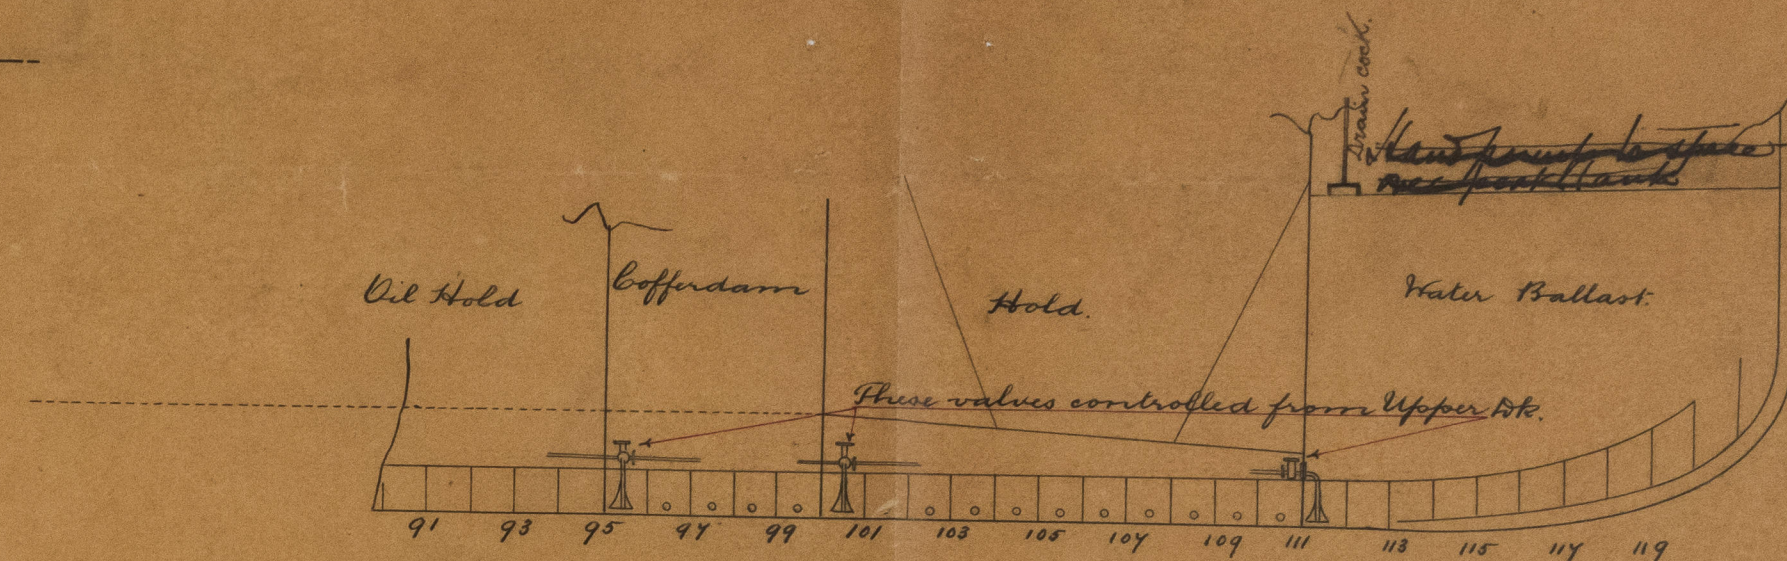 Drain cock.
& Hand pump to space
over peak tank
Oil Hold
Cofferdam
Hold.
Water Ballast.
These valves controlled from Upper Dk.
91 93 95 97 99 101 103 105 107 109 111 113 115 117 119